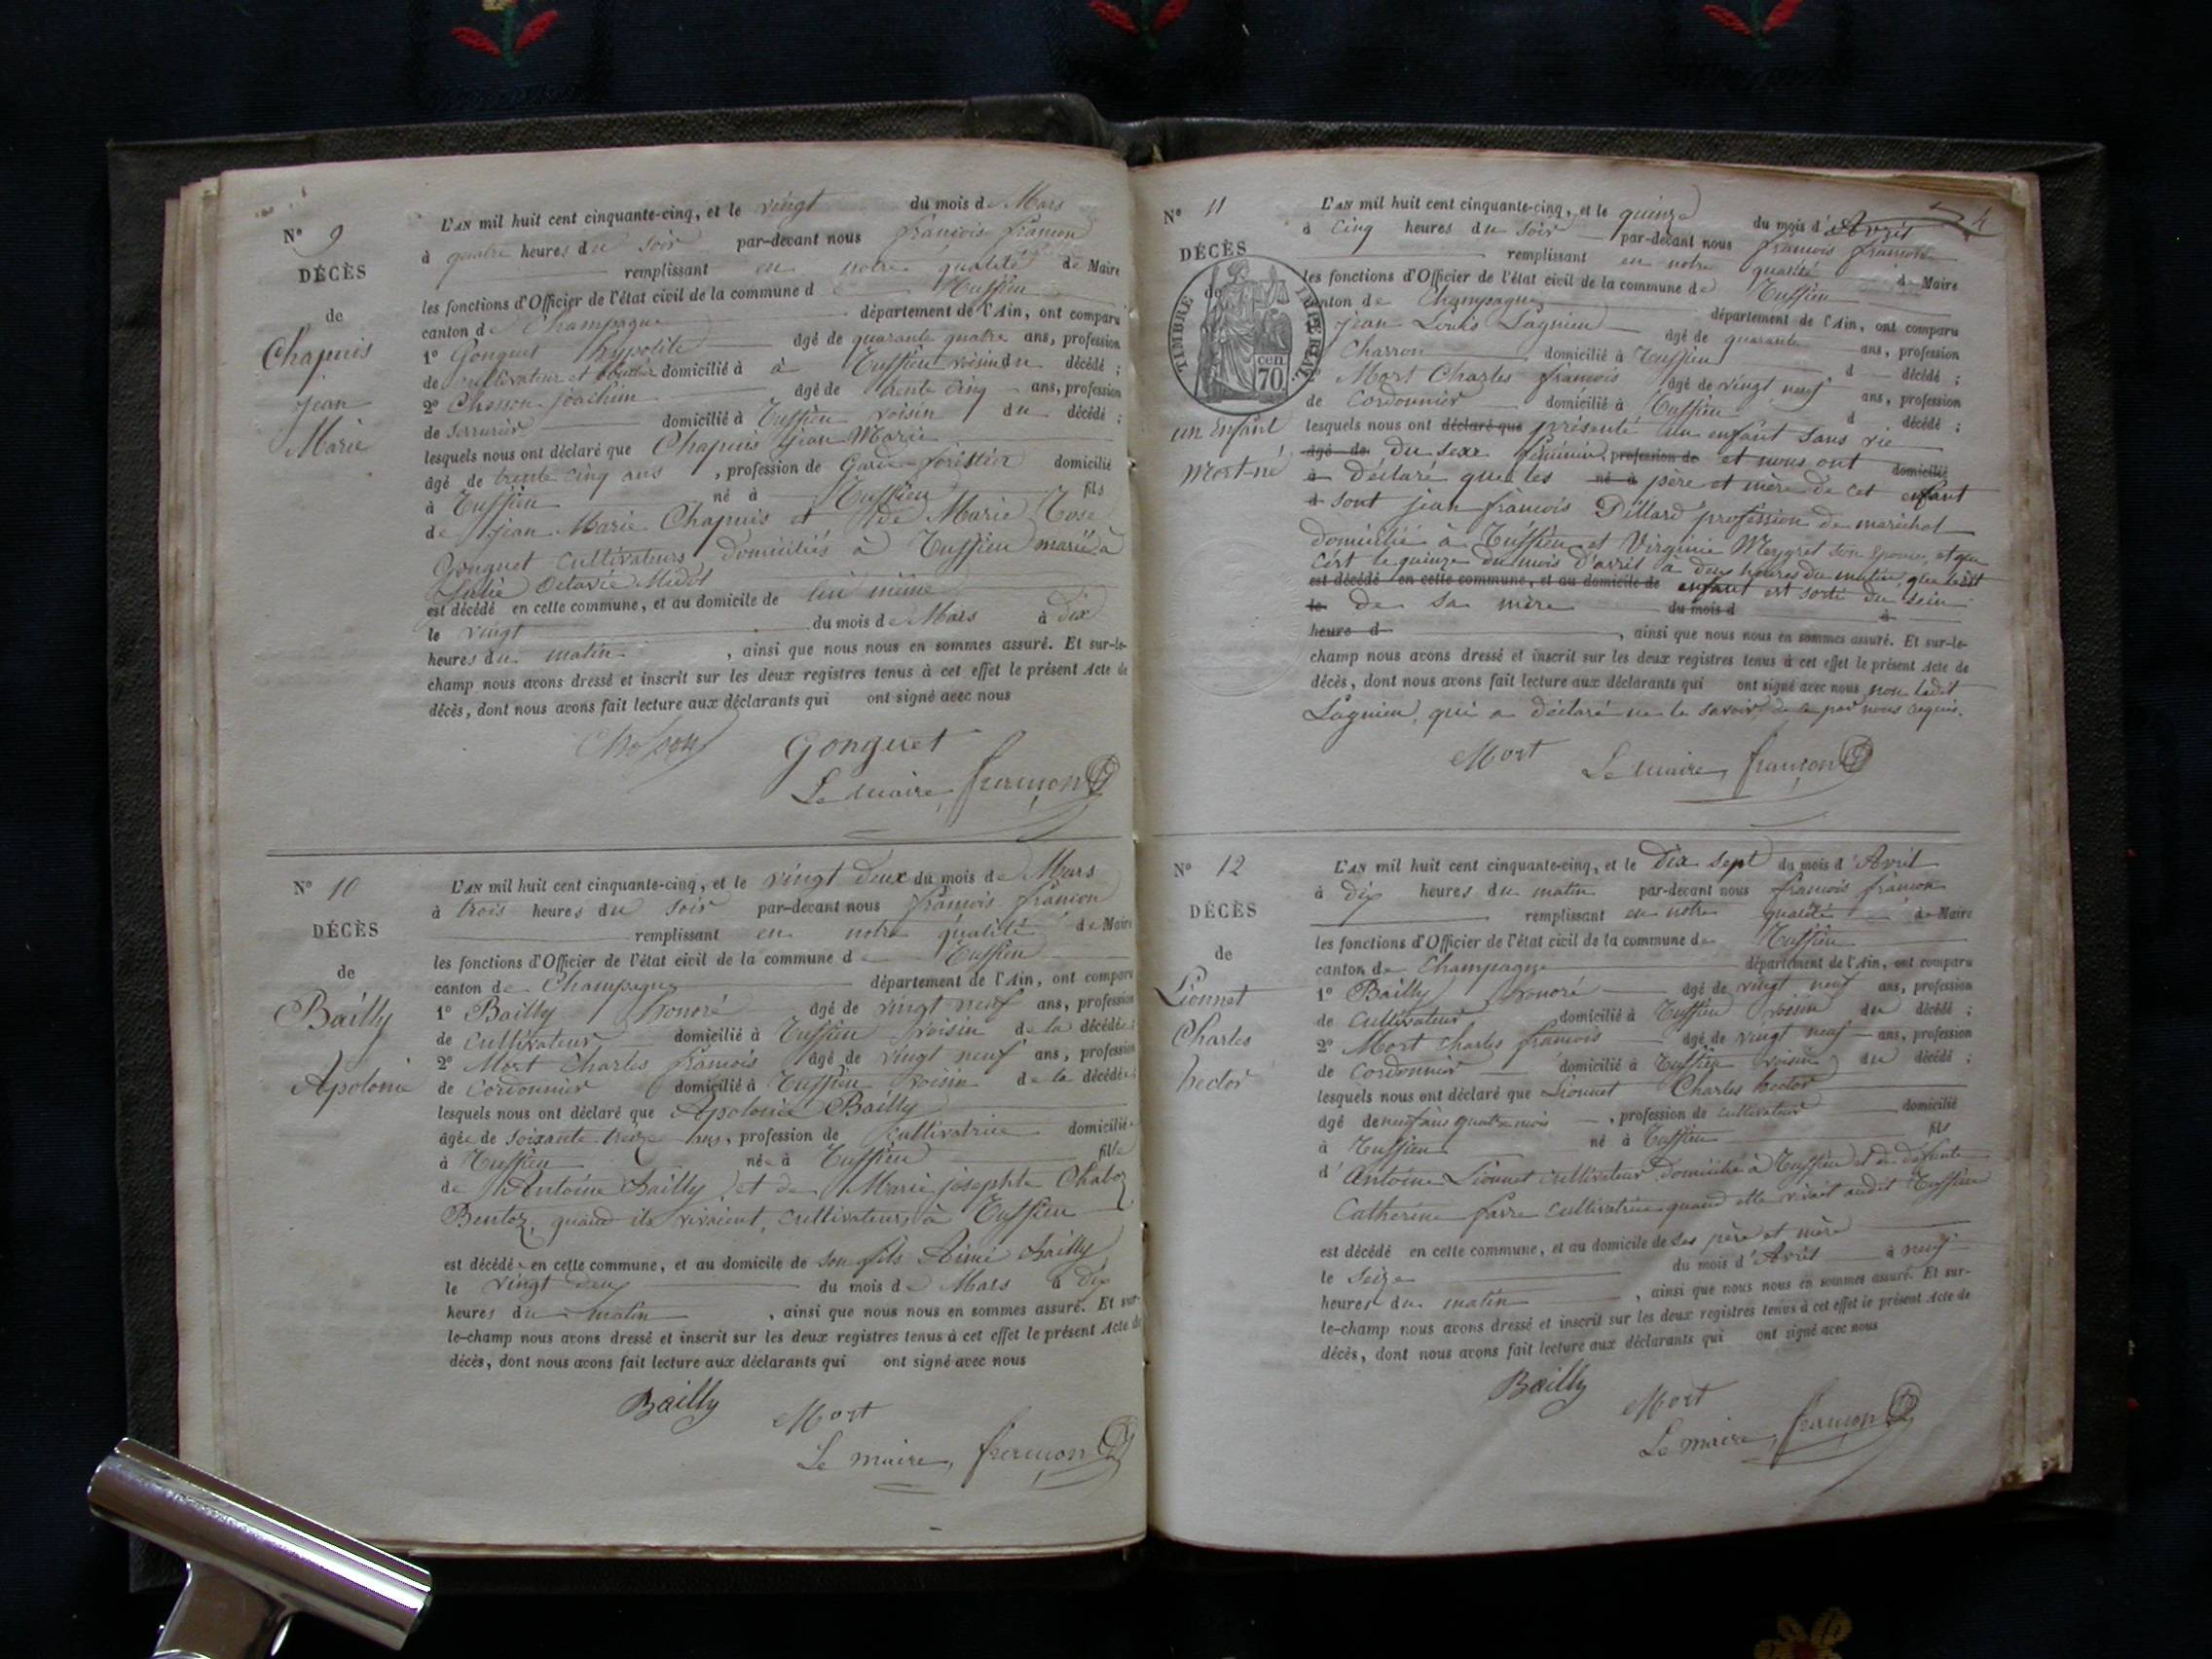 N° 9
DÉCÈS
de
Chapuis
jean
Marie
L'AN mil huit cent cinquante-cinq, et le vingt du mois de Mars
à quatre heures du soir par-devant nous francois francon
remplissant en notre qualité de Maire
les fonctions d'Officier de l'état civil de la commune d Ruffieu
canton de Champagne département de l'Ain, ont comparu
1° Gonguet hypolite âgé de quarante quatre ans, profession
de cultivateur et domicilié à à Ruffieu voisin du décédé ;
2° Chosson joachim âgé de trente cinq ans, profession
de Serrurier domicilié à Ruffieu voisin du décédé ;
lesquels nous ont déclaré que Chapuis jean Marie
âgé de trente cinq ans, profession de Garde-forestier domicilié
à Ruffieu né à Ruffieu fils
de jean Marie Chapuis et de Marie Rose
Gonguet cultivateurs domiciliés à Ruffieu marié à
Julie Octavie
est décédé en cette commune, et au domicile de lui même
le vingt du mois de Mars à dix
heures du matin, ainsi que nous nous en sommes assuré. Et sur-le-
champ nous avons dressé et inscrit sur les deux registres tenus à cet effet le présent Acte de
décès, dont nous avons fait lecture aux déclarants qui ont signé avec nous
Chosson Gonguet
Le maire, francon
N° 10
DÉCÈS
de
Bailly
Apolonie
L'AN mil huit cent cinquante-cinq, et le vingt deux du mois de Mars
à trois heures du soir par-devant nous francois francon
remplissant en notre qualité de Maire
les fonctions d'Officier de l'état civil de la commune d Ruffieu
canton de Champagne département de l'Ain, ont comparu
1° Bailly honoré âgé de vingt neuf ans, profession
de cultivateur domicilié à Ruffieu voisin de la décédée ;
2° Mort Charles francois âgé de vingt neuf ans, profession
de Cordonnier domicilié à Ruffieu voisin de la décédée ;
lesquels nous ont déclaré que Apolonie Bailly
âgée de soixante treize ans, profession de cultivatrice domiciliée
à Ruffieu née à Ruffieu fille
de Antoine Bailly et de Marie josephte
quand ils vivaient, cultivateurs à Ruffieu
est décédée en cette commune, et au domicile de son fils Aimé Bailly
le vingt deux du mois de Mars à dix
heures du matin, ainsi que nous nous en sommes assuré. Et sur-
le-champ nous avons dressé et inscrit sur les deux registres tenus à cet effet le présent Acte de
décès, dont nous avons fait lecture aux déclarants qui ont signé avec nous
Bailly Mort
Le maire, francon
4
N° 11
DÉCÈS
de
TIMBRE IMPÉRIAL
cen.
70
un Enfant
Mort-né
L'AN mil huit cent cinquante-cinq, et le quinze du mois d'Avril
à cinq heures du soir par-devant nous francois francon
remplissant en notre qualité de Maire
les fonctions d'Officier de l'état civil de la commune de Ruffieu
canton de Champagne département de l'Ain, ont comparu
jean Louis Lagnieu âgé de quarante ans, profession
Charron domicilié à Ruffieu d décédé ;
Mort Charles francois âgé de vingt neuf ans, profession
de Cordonnier domicilié à Ruffieu d décédé ;
lesquels nous ont déclaré que présenté un enfant sans vie
âgé de du sexe féminin, profession de et nous ont domicilié
à déclaré que les né à père et mère de cet enfant
d sont jean francois Dillard profession de maréchal
domicilié à Ruffieu et Virginie Meygret son épouse, et que
c'est le quinze du mois d'avril à deux heures du matin, que ledit
est décédé en cette commune, et au domicile de enfant est sorti du sein
le de sa mère du mois d à
heure d, ainsi que nous nous en sommes assuré. Et sur-le-
champ nous avons dressé et inscrit sur les deux registres tenus à cet effet le présent Acte de
décès, dont nous avons fait lecture aux déclarants qui ont signé avec nous non ledit
Lagnieu, qui a déclaré ne le savoir de ce par nous requis.
Mort Le maire, francon
N° 12
DÉCÈS
de
Lionnet
Charles
hector
L'AN mil huit cent cinquante-cinq, et le dix sept du mois d'Avril
à dix heures du matin par-devant nous francois francon
remplissant en notre qualité de Maire
les fonctions d'Officier de l'état civil de la commune de Ruffieu
canton de Champagne département de l'Ain, ont comparu
1° Bailly honoré âgé de vingt neuf ans, profession
de Cultivateur domicilié à Ruffieu voisin du décédé ;
2° Mort Charles francois âgé de vingt neuf ans, profession
de Cordonnier domicilié à Ruffieu voisin du décédé ;
lesquels nous ont déclaré que Lionnet Charles hector
âgé de neuf ans quatre mois, profession de cultivateur domicilié
à Ruffieu né à Ruffieu fils
d'Antoine Lionnet cultivateur domicilié à Ruffieu et de défunte
Catherine favre cultivatrice quand elle vivait audit Ruffieu
est décédé en cette commune, et au domicile de ses père et mère
le seize du mois d'Avril à neuf
heures du matin, ainsi que nous nous en sommes assuré. Et sur-
le-champ nous avons dressé et inscrit sur les deux registres tenus à cet effet le présent Acte de
décès, dont nous avons fait lecture aux déclarants qui ont signé avec nous
Bailly Mort
Le maire, francon